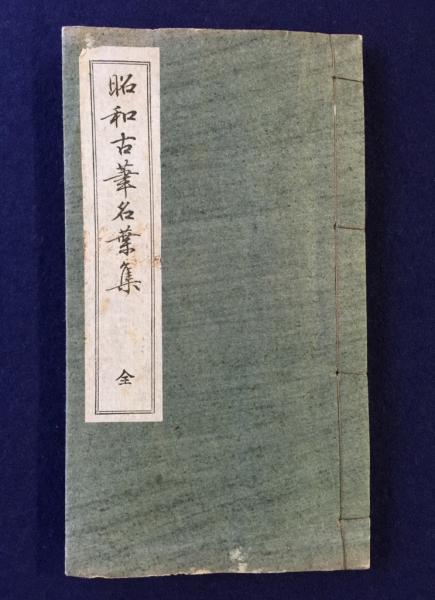 昭和古筆名葉集
全